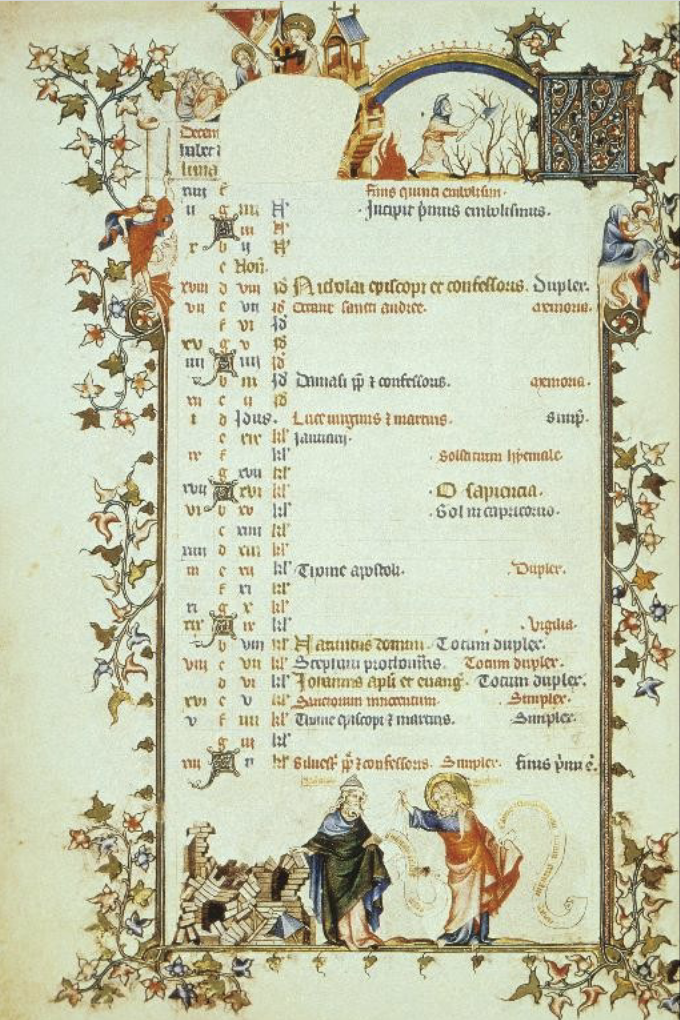 Decem
habet
luna
KL
xiii f Finis quinti embolism.
ii g iiii N Incipit pmus embolismus.
A iii N
x b ii N
c Non.
xviii d viii id Nicholai episcopi et confessoris. Dupler.
vii e vii id Octaue sancti andree. memoria.
f vi id
xv g v id
iiii A iiii id
b iii id Damasi pp ⁊ confessoris. memoria.
xii c ii id
i d Idus. Luce uirginis ⁊ martiris. Simp.
e xix kl' Ianuarij.
ix f kl' Solsticium hyemale.
g xvii kl'
xvii A xvi kl' O sapiencia.
vi b xv kl' Sol in capricorno.
c xiiii kl'
xiiii d xiii kl'
iii e xii kl' Thome apostoli. Dupler.
f xi kl'
xi g x kl'
xix A ix kl' Vigilia.
b viii kl' Natiuitas domini. Totum dupler.
viii c vii kl' Stephani prothomris. Totum dupler.
d vi kl' Iohannis apli et euang. Totum dupler.
xvi e v kl' Sanctorum innocentum. Simplex.
v f iiii kl' Thome episcopi ⁊ martiris. Simplex.
g iii kl'
xiii A ii kl' Siluest' pp ⁊ confessoris. Simplex. finis pmi e.